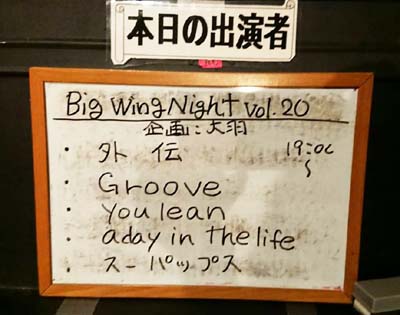 本日の出演者
Big Wing Night vol.20
企画:大羽
・外伝 19:00〜
・Groove
・you lean
・aday in the life
・スーパップス